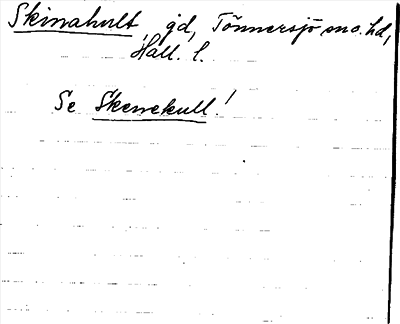 Skinahult gd, Tönnersjö sn o. hd,
Hall. l.
Se Skenekull!